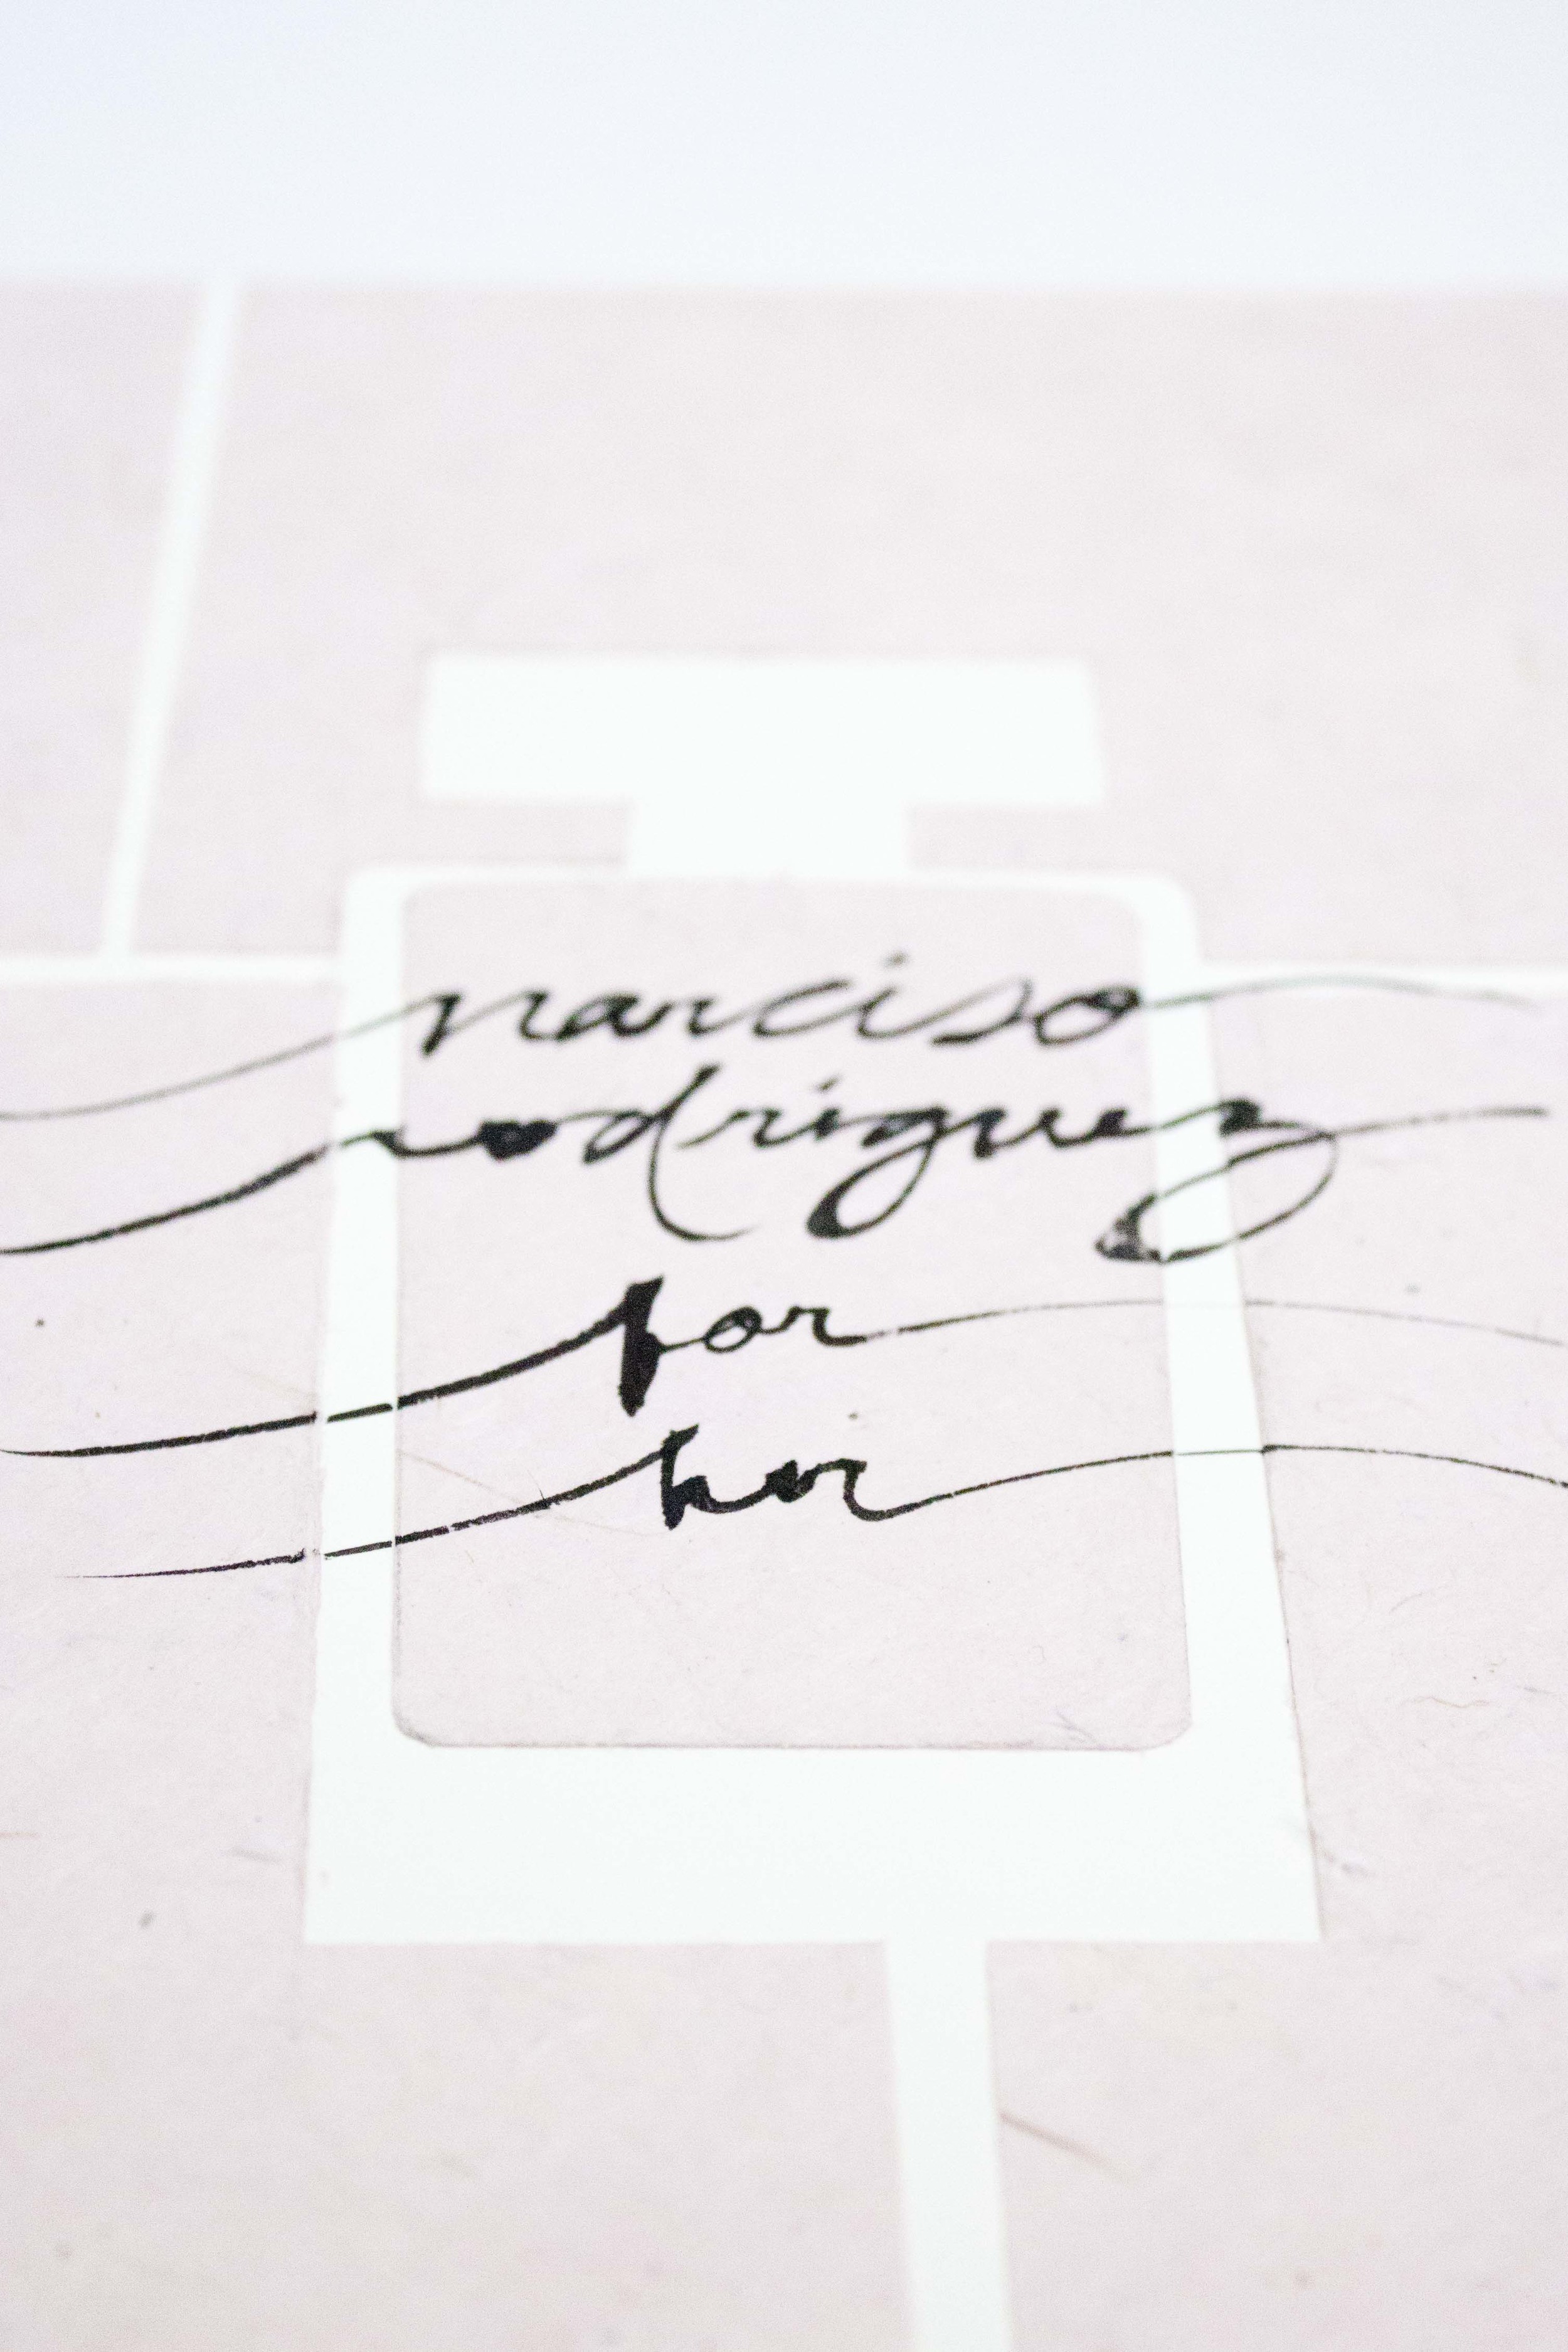 narciso
rodriguez
for
her